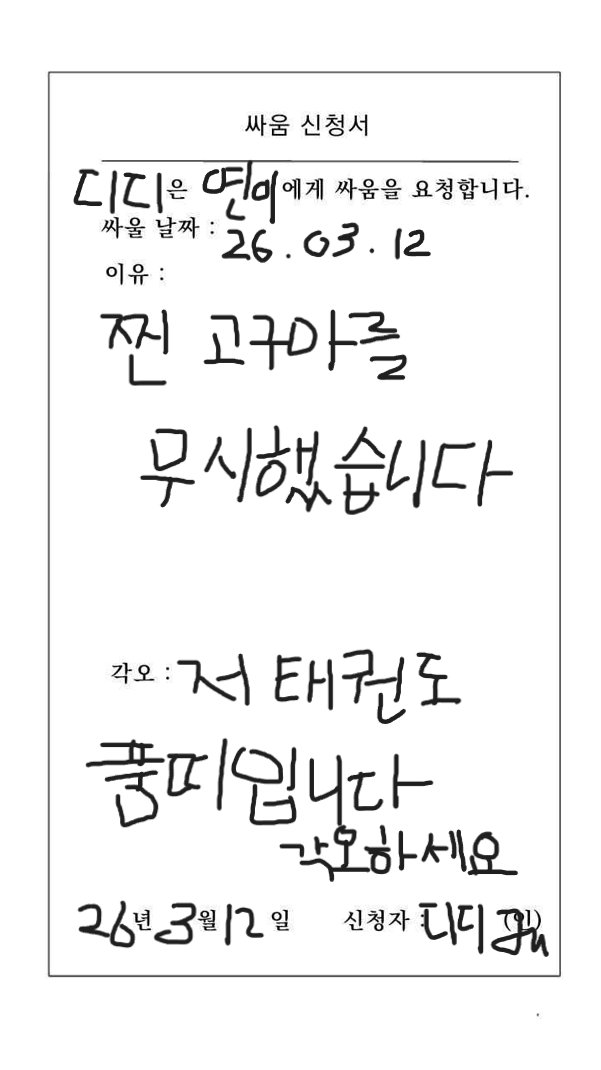 싸움 신청서
디디은 연미에게 싸움을 요청합니다.
싸울 날짜 : 26.03.12
이유 :
찐 고구마를
무시했습니다
각오 : 저 태권도
품띠입니다
각오하세요
26년 3월 12일 신청자 : 디디 (인)